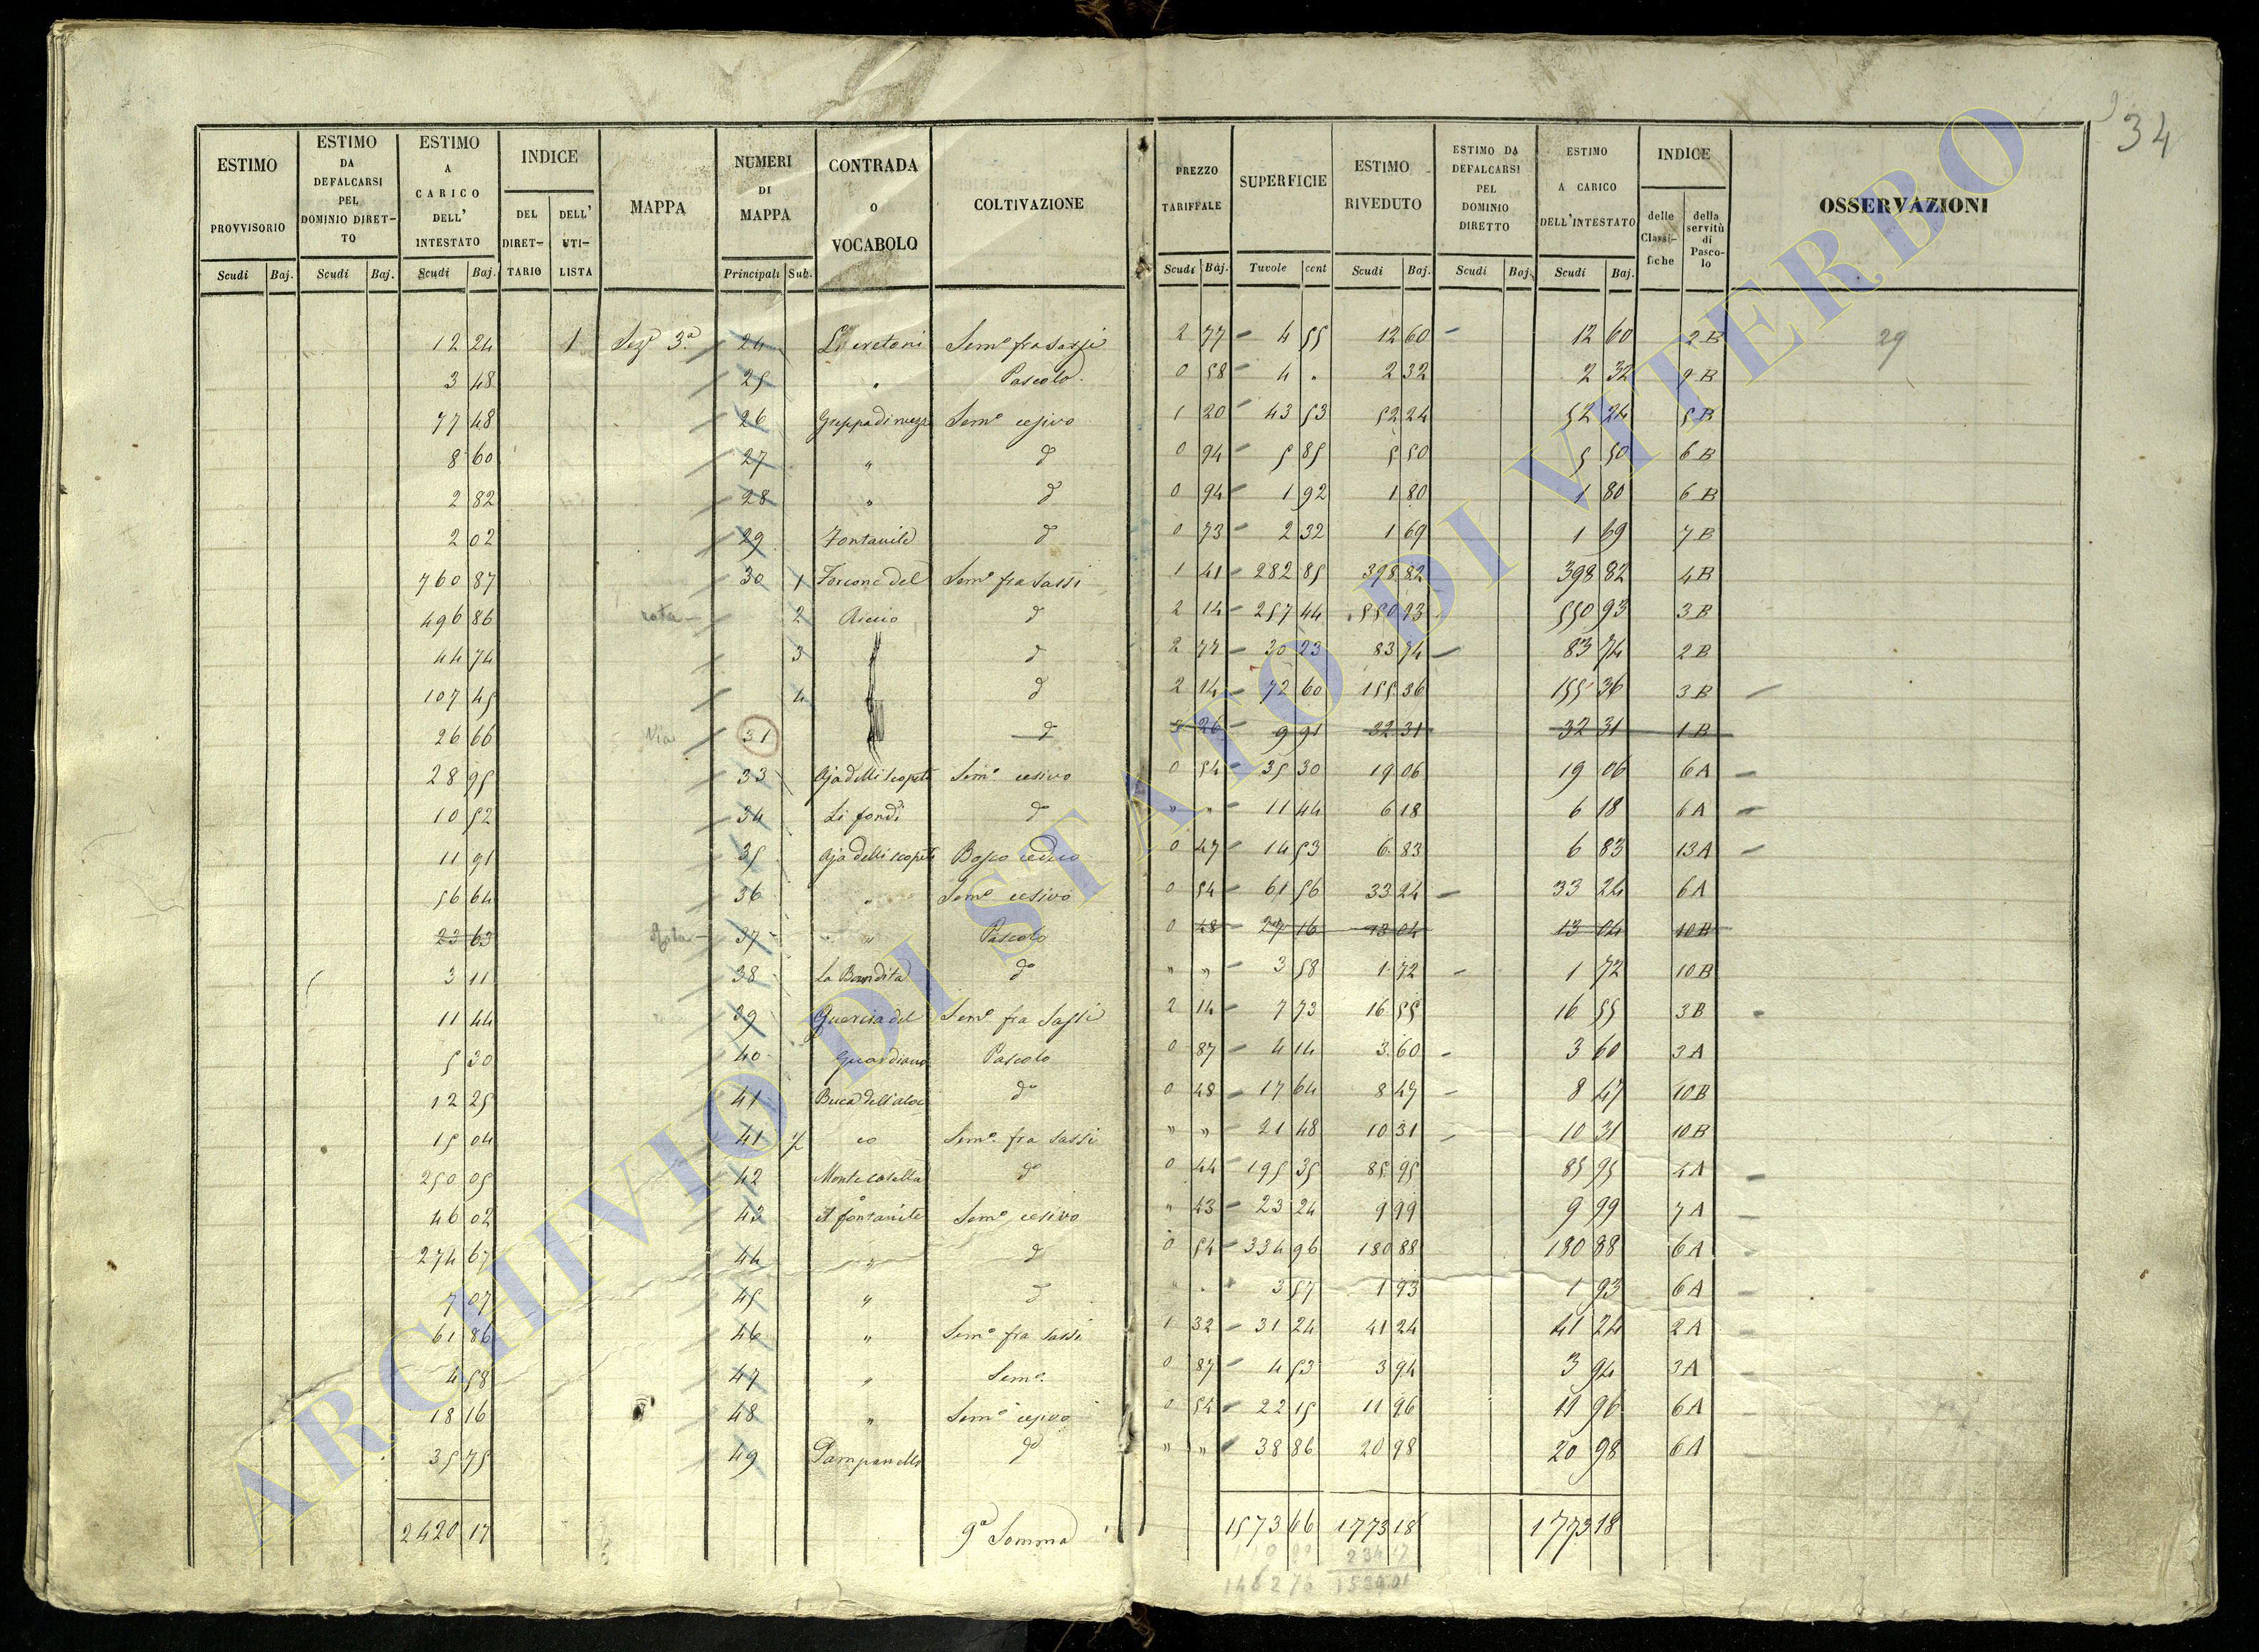 34
ESTIMO PROVVISORIO Scudi Baj. | ESTIMO DA DEFALCARSI PEL DOMINIO DIRET-TO Scudi Baj. | ESTIMO A CARICO DELL' INTESTATO Scudi Baj. | INDICE DEL DIRET-TARIO DELL' UTI-LISTA | MAPPA | NUMERI DI MAPPA Principali Sub. | CONTRADA O VOCABOLO | COLTIVAZIONE | PREZZO TARIFFALE Scudi Baj. | SUPERFICIE Tavole cent | ESTIMO RIVEDUTO Scudi Baj. | ESTIMO DA DEFALCARSI PEL DOMINIO DIRETTO Scudi Baj. | ESTIMO A CARICO DELL'INTESTATO Scudi Baj. | INDICE delle Classi-fiche della servitù di Pasco-lo | OSSERVAZIONI
12 24 1 Sezᵉ 3ª 24 Semᵒ fra sassi 2 77 4 55 12 60 12 60 2 B 29
3 48 25 " Pascolo 0 58 4 . 2 32 2 32 9 B
77 48 26 Semᵒ cesivo 1 20 43 53 52 24 52 24 5 B
8 60 27 " d 0 94 5 85 5 50 5 50 6 B
2 82 28 " d 0 94 1 92 1 80 1 80 6 B
2 02 29 Fontanile d 0 73 2 32 1 69 1 69 7 B
760 87 30 1 Forcone del Semᵒ fra sassi 1 41 282 85 398 82 398 82 4 B
496 86 rota 2 Riccio d 2 14 257 44 550 93 550 93 3 B
44 74 3 d 2 77 30 23 83 74 83 74 2 B
107 45 4 d 2 14 72 60 155 36 155 36 3 B
26 66 Via 31 d 3 26 9 91 32 31 32 31 1 B
28 95 33 Aja delli scopeti Semᵒ cesivo 0 54 35 30 19 06 19 06 6 A
10 52 34 Li fondi d " " 11 44 6 18 6 18 6 A
11 91 35 Aja delli scopeti Bosco ceduo 0 47 14 53 6 83 6 83 13 A
56 64 36 " Semᵒ cesivo 0 54 61 56 33 24 33 24 6 A
23 63 37 " Pascolo 0 48 27 16 13 04 13 04 10 B
3 11 38 La Bandita dᵒ " " 3 58 1 72 1 72 10 B
11 44 39 Quercia del Semᵒ fra Sassi 2 14 7 73 16 55 16 55 3 B
5 30 40 Guardiano Pascolo 0 87 4 14 3 60 3 60 3 A
12 25 41 dᵒ 0 48 17 64 8 47 8 47 10 B
15 04 41 ½ Semᵒ fra sassi " " 21 48 10 31 10 31 10 B
250 05 42 dᵒ 0 44 195 35 85 95 85 95 4 A
46 02 43 Semᵒ cesivo " 43 23 24 9 99 9 99 7 A
274 67 44 " d 0 54 334 96 180 88 180 88 6 A
7 07 45 " d " " 3 57 1 93 1 93 6 A
61 86 46 " Semᵒ fra sassi 1 32 31 24 41 24 41 24 2 A
4 58 47 " Semᵒ 0 87 4 53 3 94 3 94 3 A
18 16 48 " Semᵒ cesivo 0 54 22 15 11 96 11 96 6 A
35 75 49 Pampanello dᵒ " " 38 86 20 98 20 98 6 A
2420 17 9ª Somma 1573 66 1773 18 1773 18
234 17
1539 01
ARCHIVIO DI STATO DI VITERBO